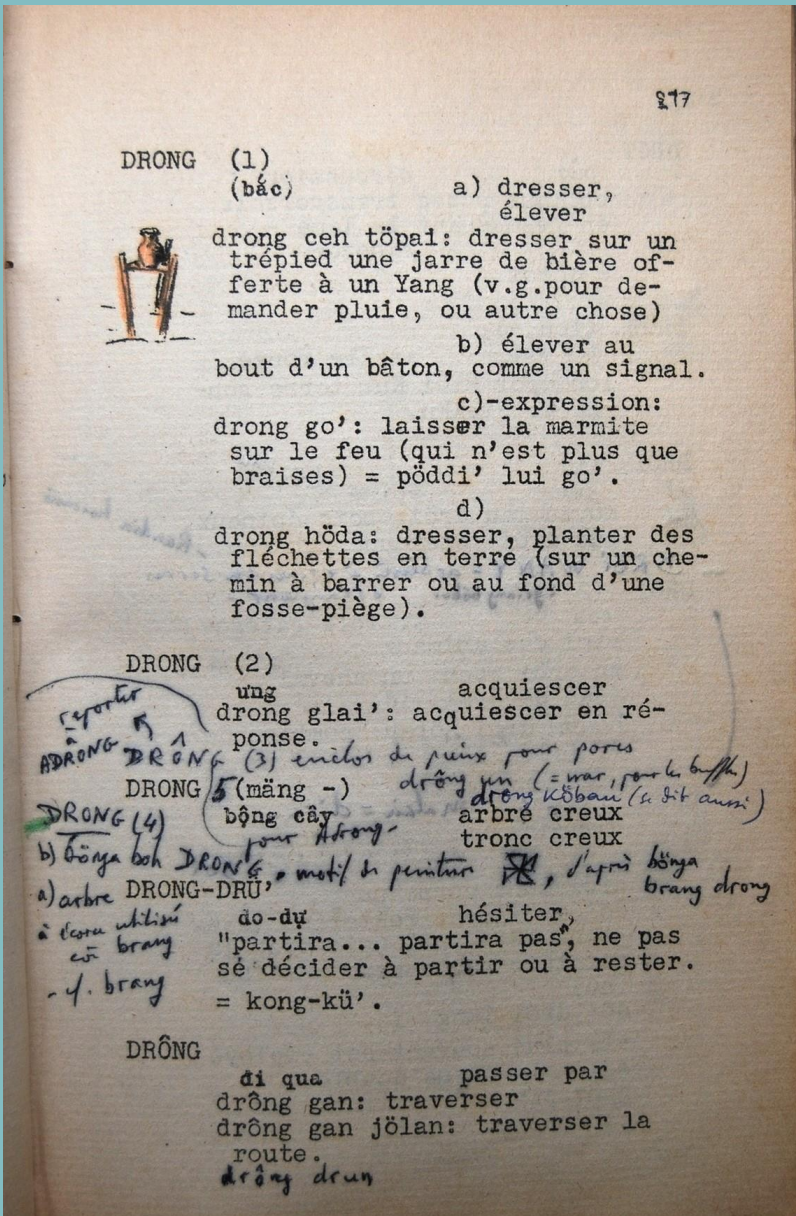 217
DRONG (1)
(bắc) a) dresser,
élever
drong ceh töpai: dresser sur un
trépied une jarre de bière of-
ferte à un Yang (v.g.pour de-
mander pluie, ou autre chose)
b) élever au
bout d'un bâton, comme un signal.
c)-expression:
drong go': laisser la marmite
sur le feu (qui n'est plus que
braises) = pöddi' lui go'.
d)
drong höda: dresser, planter des
fléchettes en terre (sur un che-
min à barrer ou au fond d'une
fosse-piège).
DRONG (2)
ưng acquiescer
drong glai': acquiescer en ré-
ponse.
reporter
à
ADRONG
DRÔNG (3) enclos de pieux pour porcs
drông un (= war, pour les buffles)
drong Köbau (se dit aussi)
DRONG 5 (mäng -)
bộng cây arbre creux
tronc creux
pour Adrong-
DRONG (4)
b) bönga boh DRONG, motif de peinture, d'après bönga
brang drong
a) arbre
à écorce utilisé
brang
- cf. brang
DRONG-DRŬ'
do-dự hésiter,
"partira... partira pas", ne pas
se décider à partir ou à rester.
= kong-kü'.
DRÔNG
đi qua passer par
drông gan: traverser
drông gan jölan: traverser la
route.
drông drun